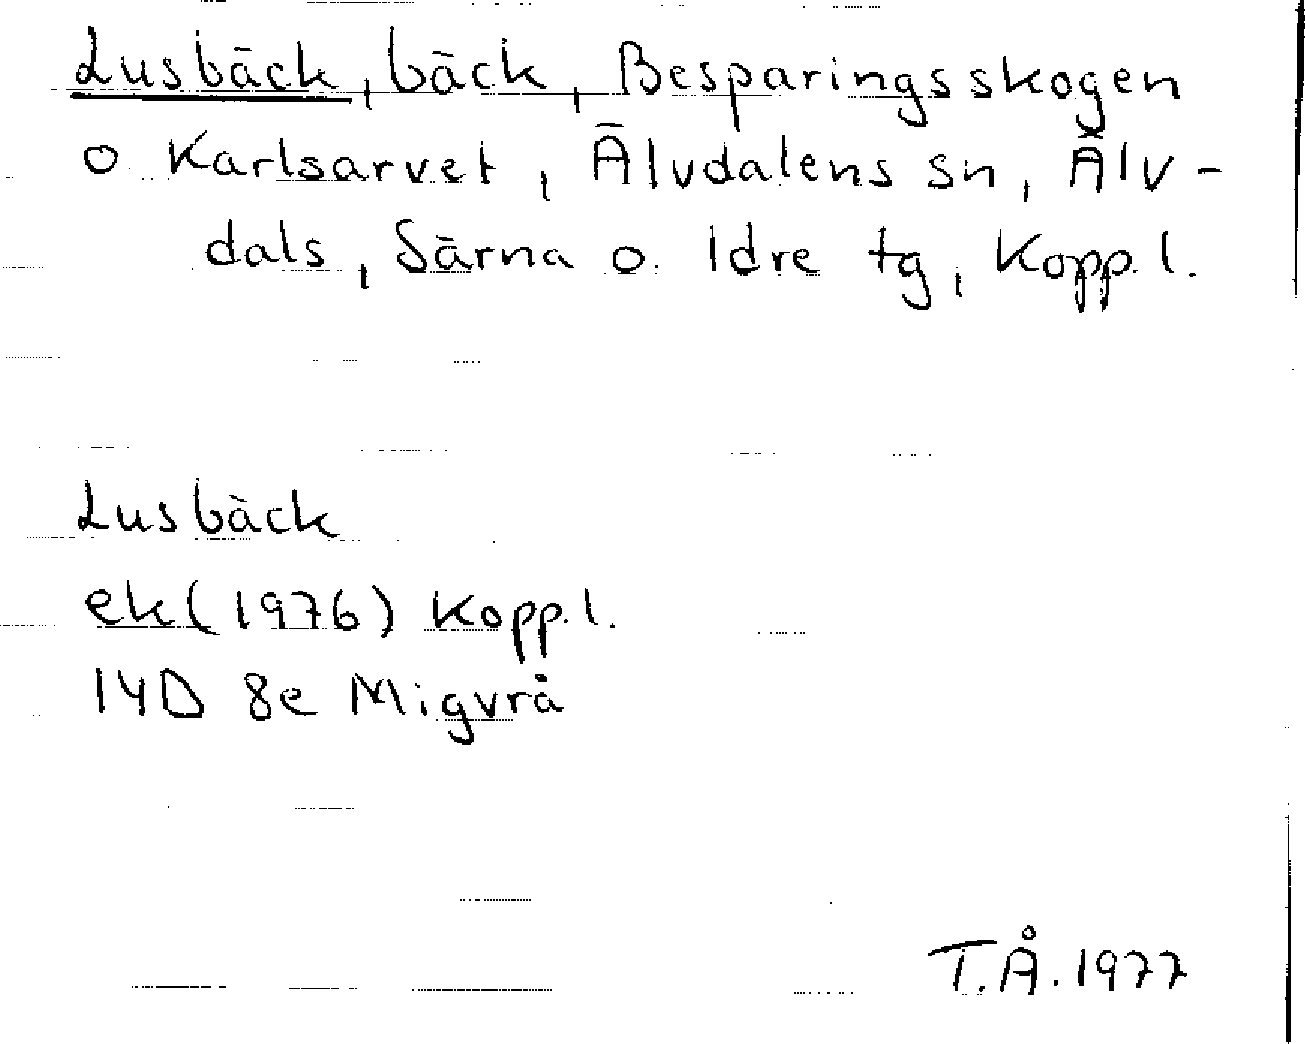 Lusbäck, bäck, Besparingsskogen
o Karlsarvet, Älvdalens sn, Älv-
dals, Särna o. Idre tg, Kopp.l.
Lusbäck
ek (1976) Kopp.l.
14D 8e Migvrå
T.Å. 1977